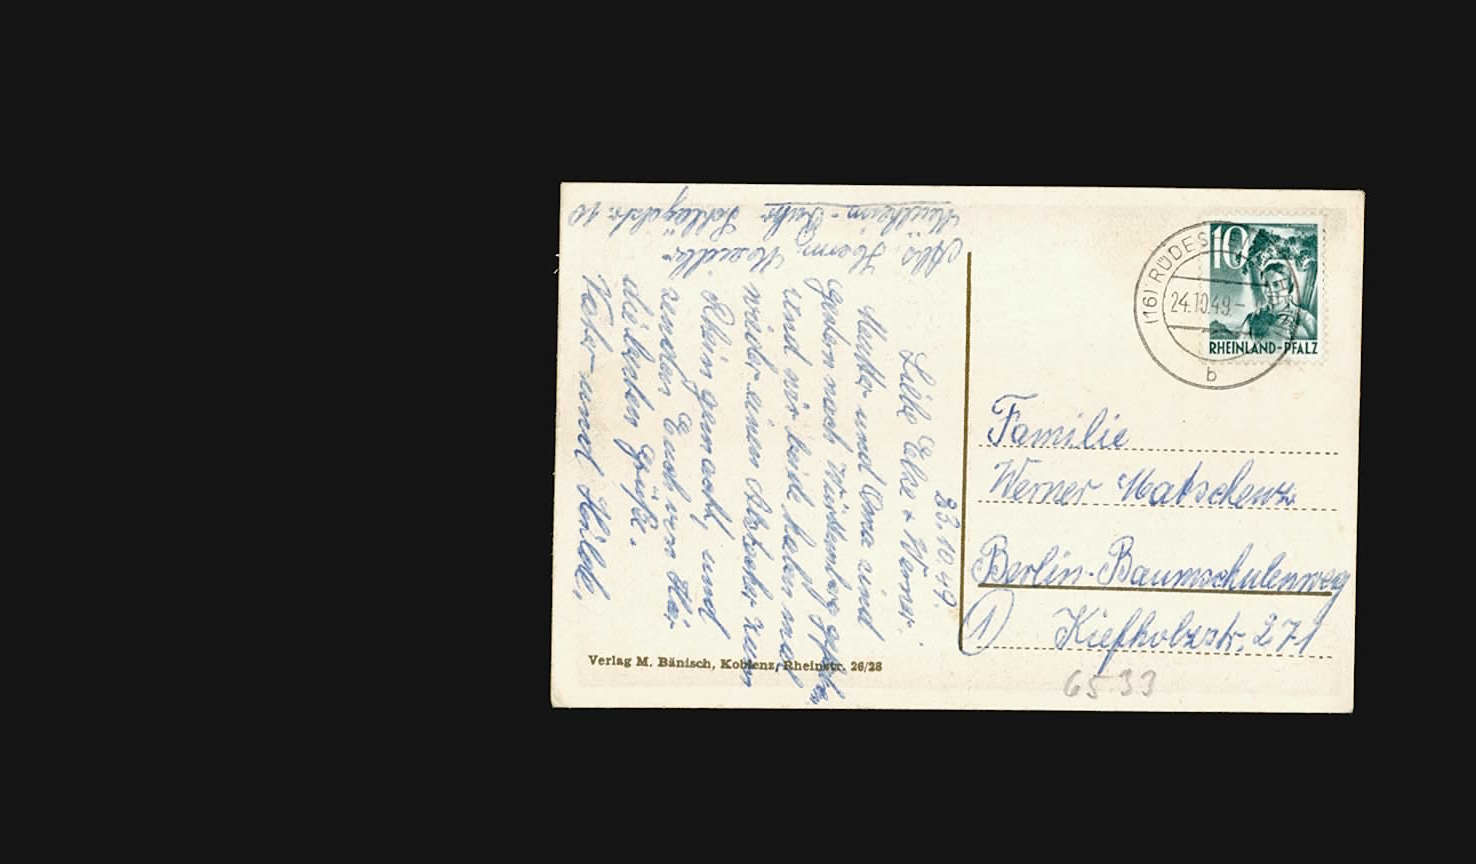 Abs. Herm. Neidlar
Mülheim-Ruhr Schlägelstr. 10
23.10.49.
Liebe Else + Werner.
Mutter und Oma sind
gestern nach Württemberg
und wir beide haben mal
wieder einen Abstecher zum
Rhein gemacht, und
senden Euch von hier
die besten Grüße.
Vater und Hilde,
Verlag M. Bänisch, Koblenz, Rheinstr. 26/28
(16) RÜDES
24.10.49-
b
10
RHEINLAND-PFALZ
Familie
Werner
Berlin-Baumschulenweg
1 Kiefholzstr. 271
6533